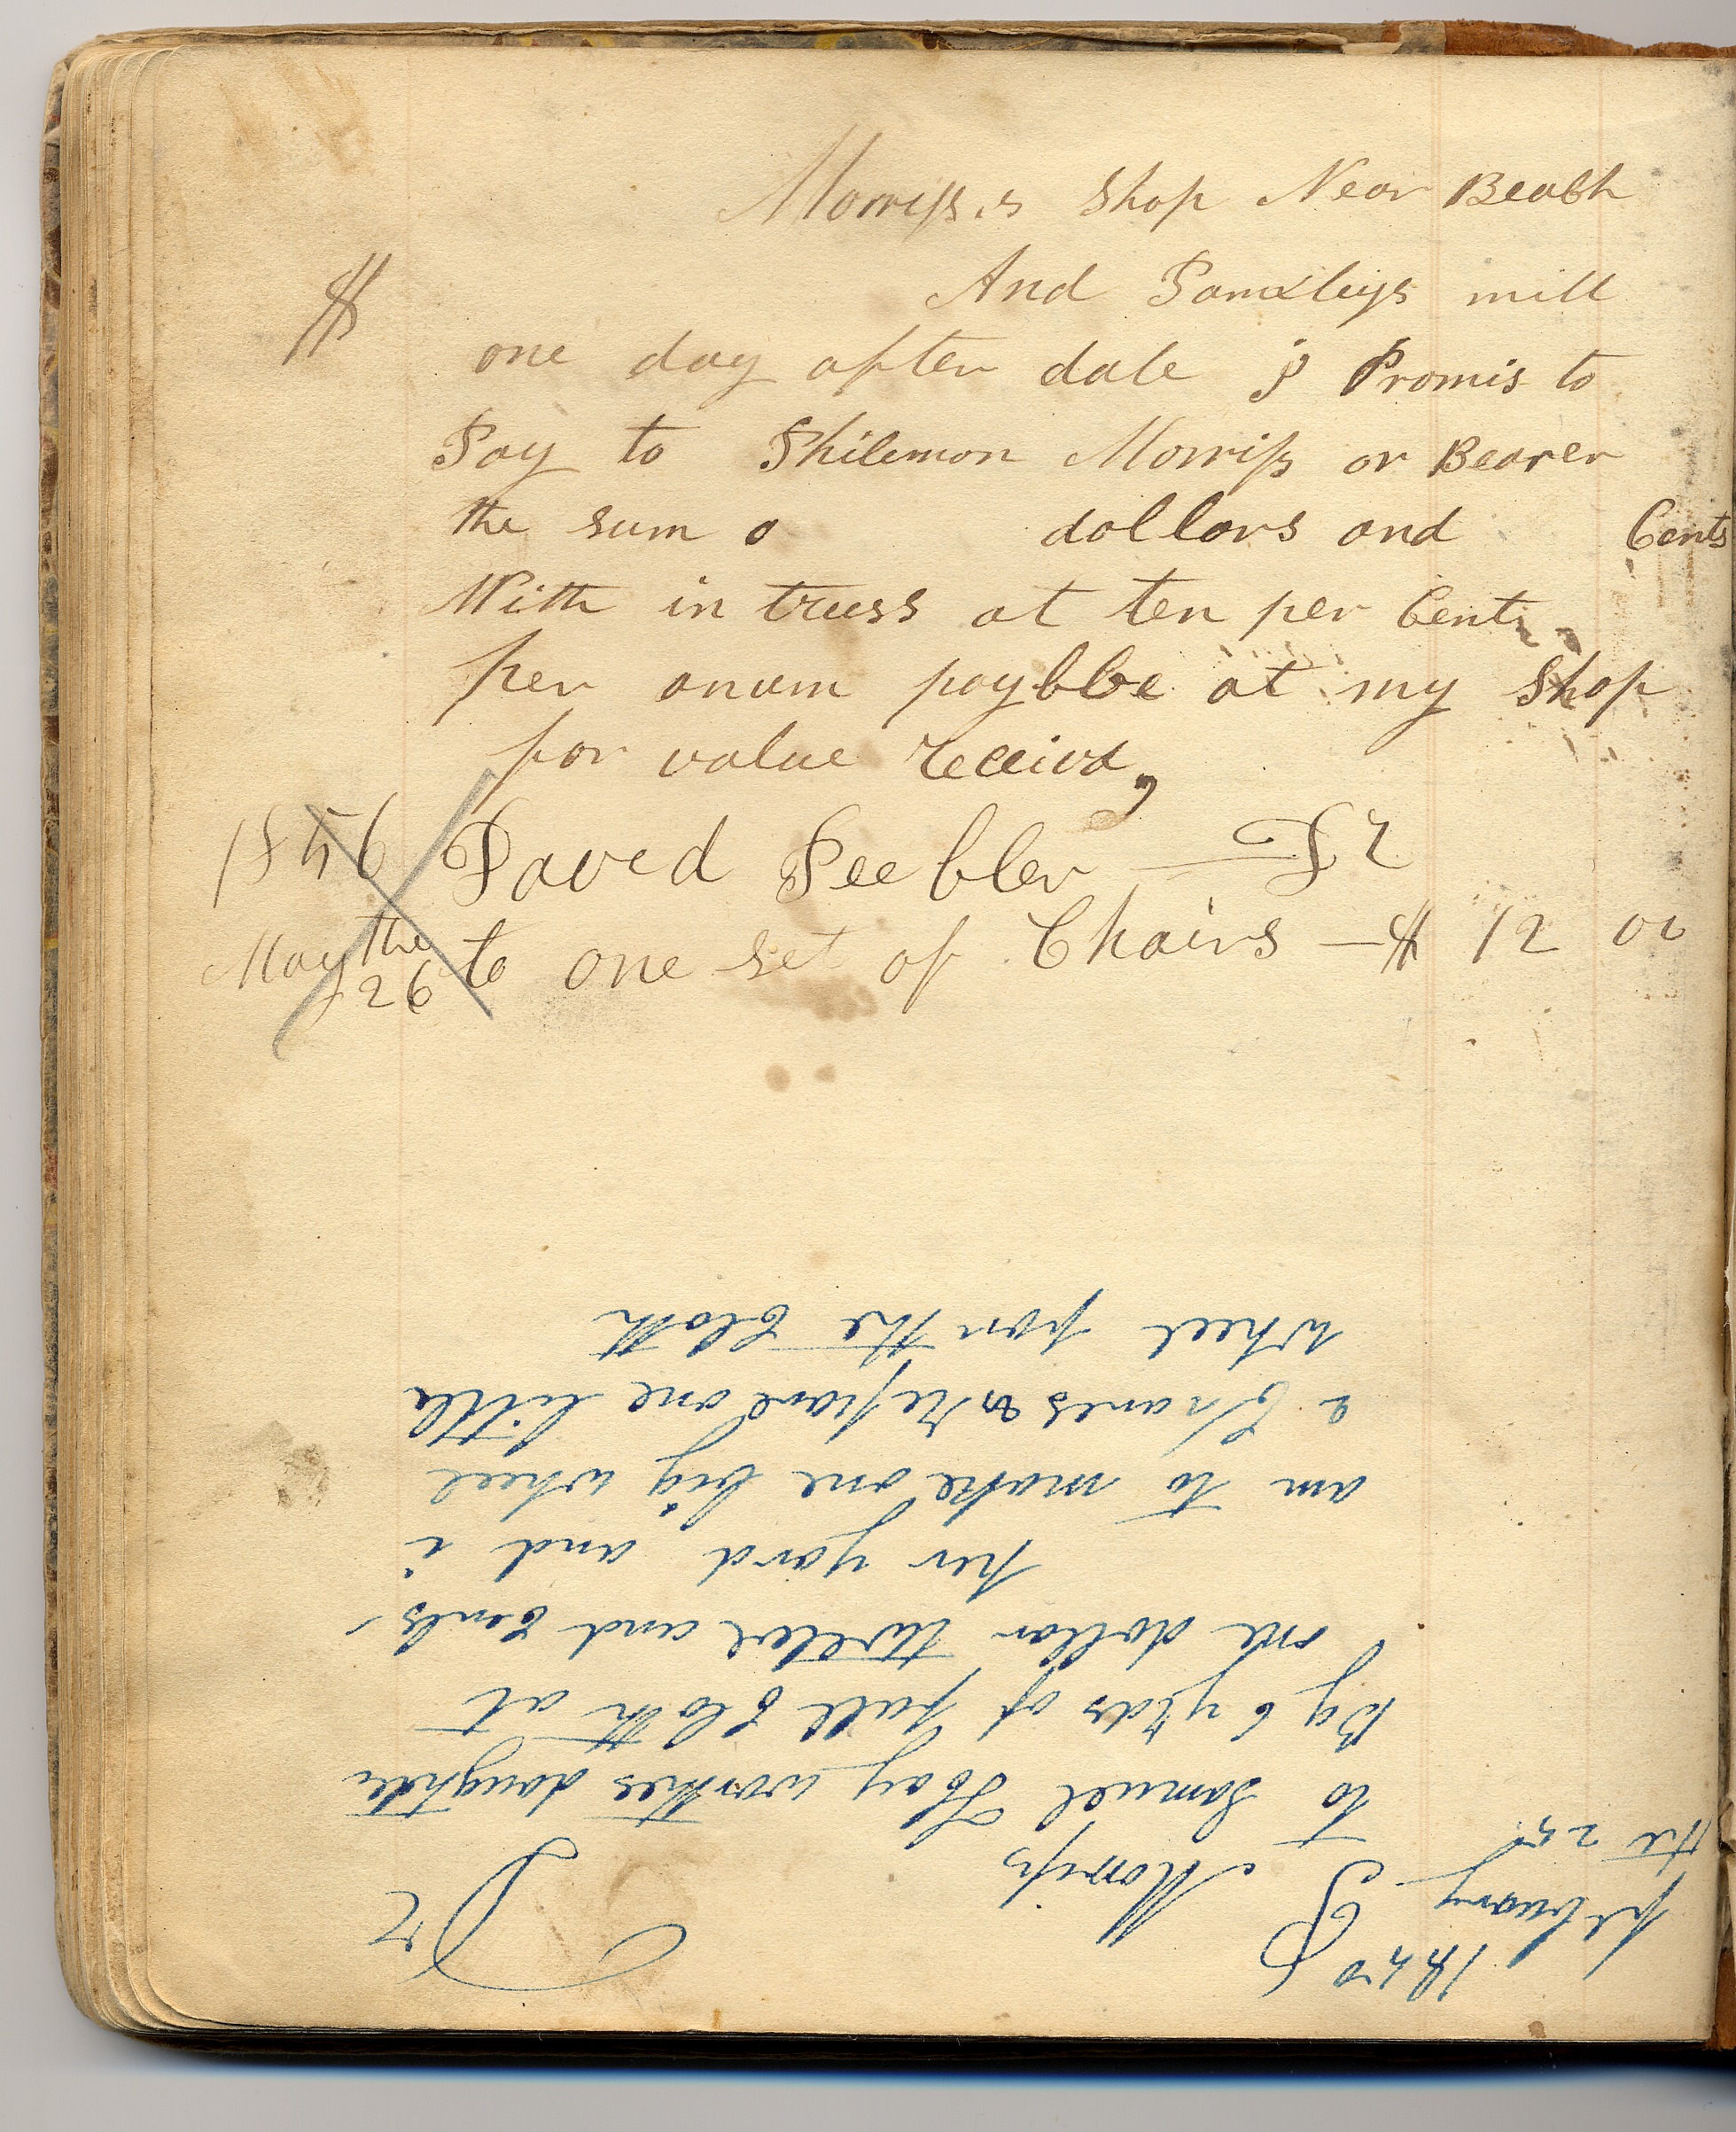 Morriss,s Shop Near Beach
And Pamxleys mill
$
one day after date j Promis to
Pay to Philemon Morriss or Bearer
the sum o dollars and Cents
With in truss at ten per Cent
per anum paybbe at my Shop
for value receivd,
1856 Daved Peebler — Dr
May the 26 to one set of Chairs — $ 12 00
P Morriss Dr
february the 25
to Samuel Hay worthes daughter
By 6 yrds of full Cloth at
one dollar twelve and Cents
per yard and i
am to make one big wheel
2 Chares & Repare one little
Wheel for the Cloth